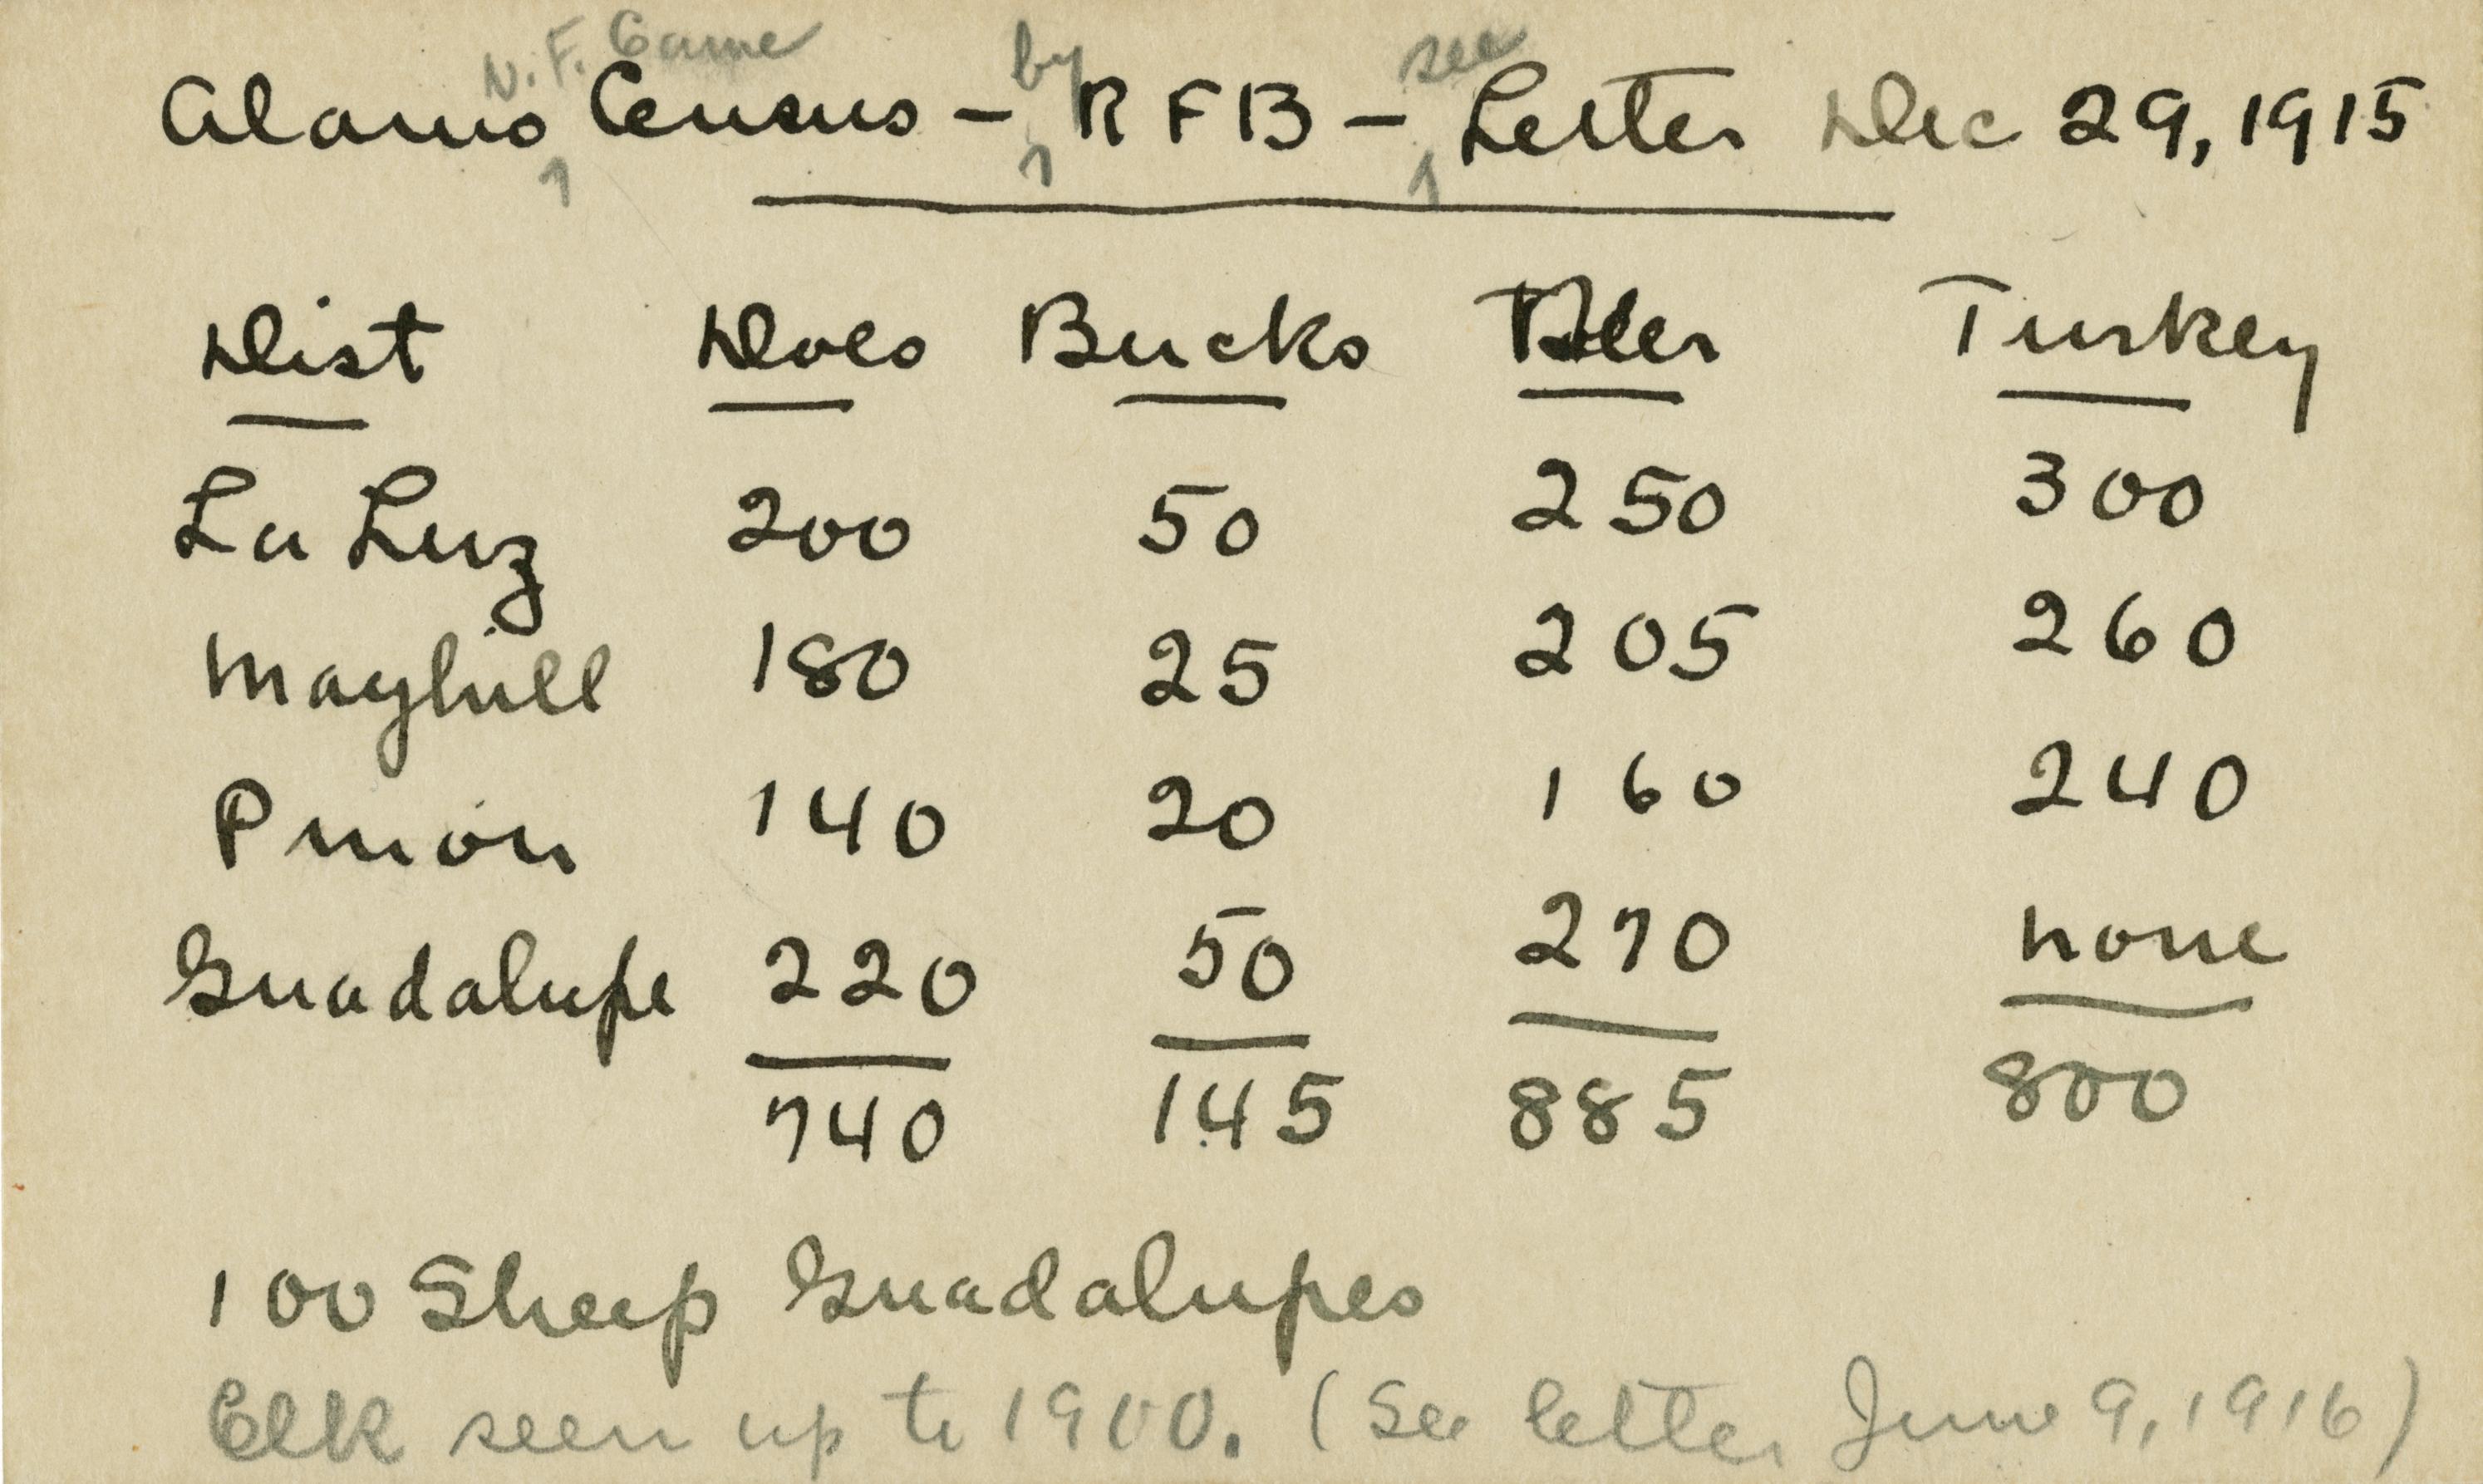 Alamo N.F. Game Census - by RFB - see Letter Dec 29, 1915
Dist Does Bucks Deer Turkey
La Luz 200 50 250 300
Mayhill 180 25 205 260
Pinon 140 20 160 240
Guadalupe 220 50 270 none
740 145 885 800
100 Sheep Guadalupes
Elk seen up to 1900. (See letter June 9, 1916)